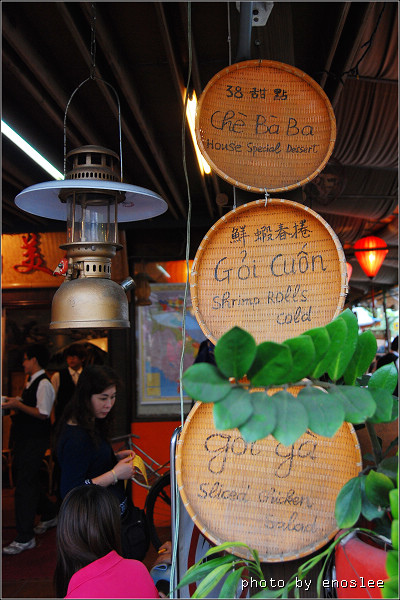 38 甜點
Chè Bà Ba
House Special Dessert
鮮蝦春捲
Gỏi Cuốn
Shrimp Rolls
cold
gỏi gà
Sliced chicken
Salad
photo by enoslee